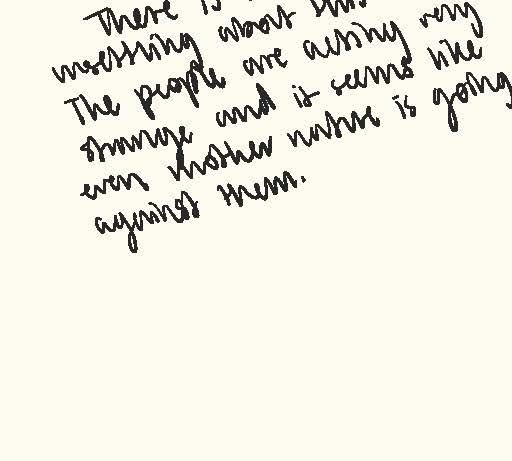 There is
unsettling about this
The people are acting very
strange and it seems like
even mother nature is going
against them.